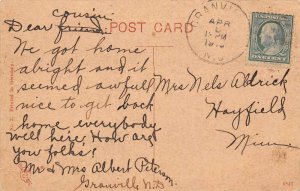 cousin
Dear friend.
POST CARD
GRANVILLE
APR
N.D.
We got home
alright and it
seemed awful
nice to get back
home everybody
well here. How are
you folks?
Mr & Mrs Albert Peterson
Granville N.D.
Mrs Nels Aldrick
Hayfield
Minn